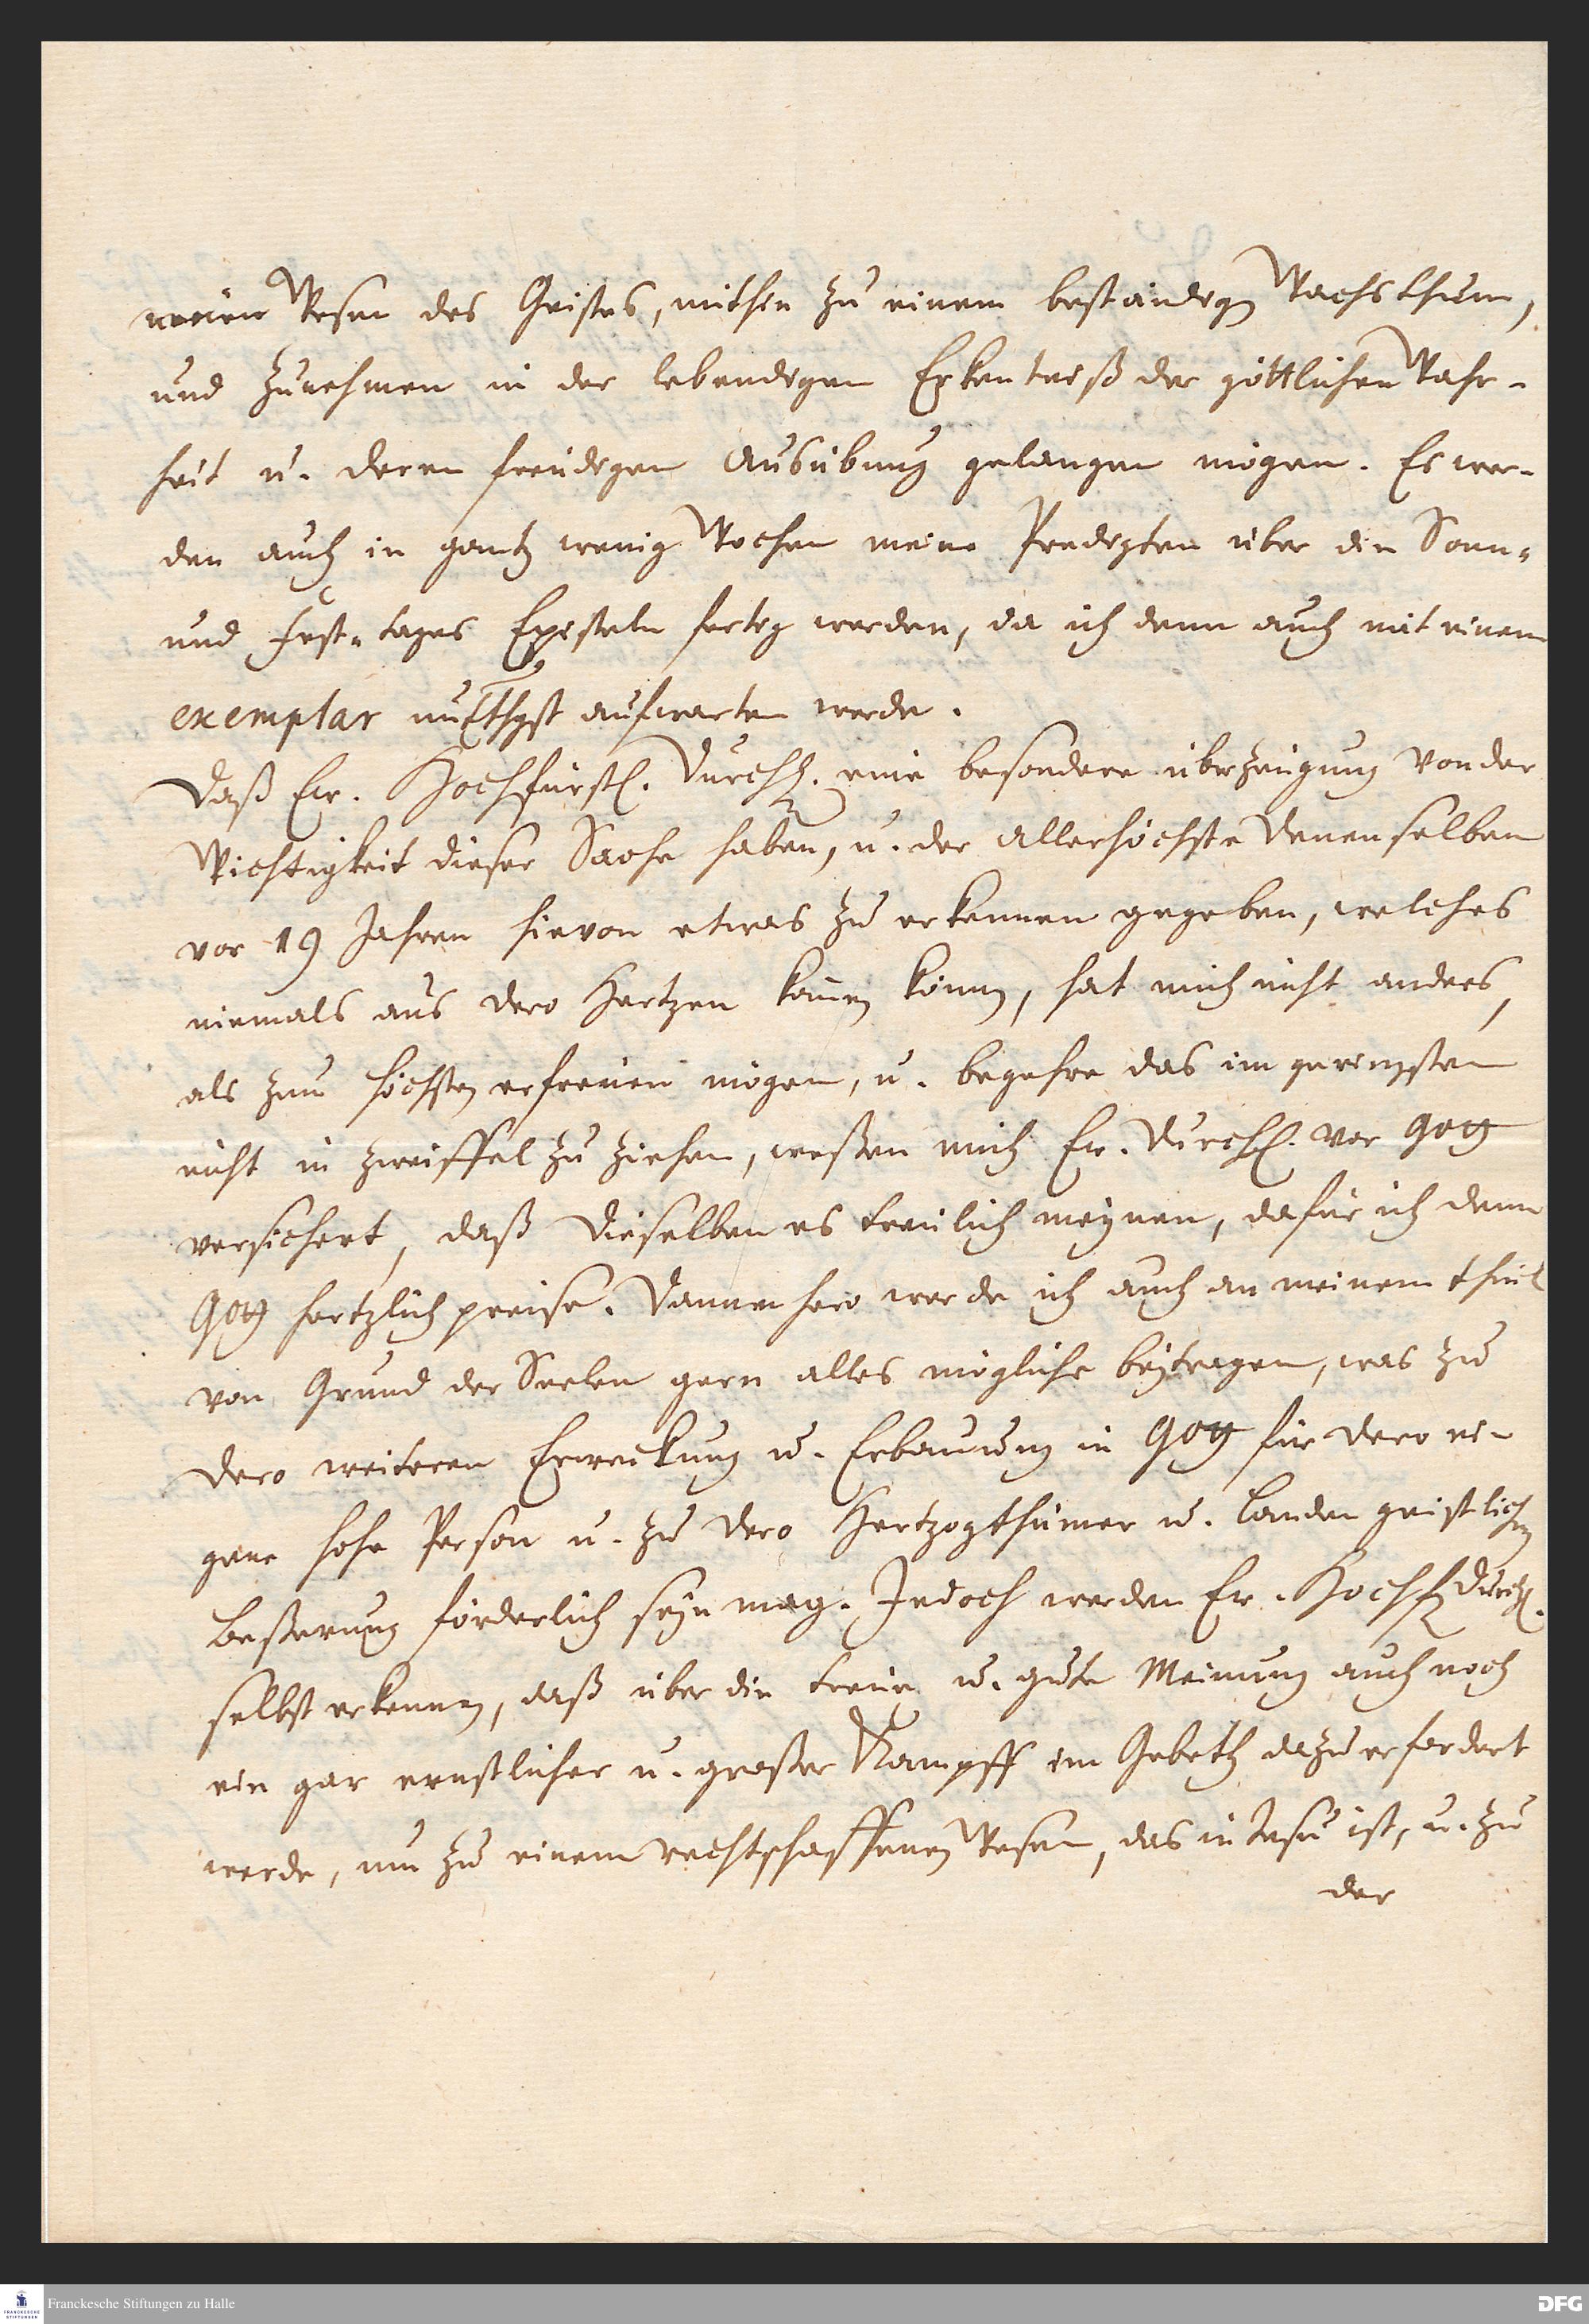 neuen Wesen des Geistes, mithin zu einem beständigen Wachsthum,
und zunehmen in der lebendigen Erkentniß der göttlichen Wahr-
heit u. deren freudigen Ausübung gelangen mögen. Es wer-
den auch in gantz wenig Wochen meine Predigten über die Sonn-
und Fest-tages Episteln fertig werden, da ich denn auch mit einem
exemplar aufwarten werde.
Daß Ew. Hochfürstl. Durchl. eine besondere überzeugung von der
Wichtigkeit dieser Sache haben, u. der Allerhöchste Denenselben
vor 19 Jahren hievon etwas zu erkennen gegeben, welches
niemals aus dero Hertzen kommen können, hat mich nicht anders,
als zum höchsten erfreuen mögen, u. begehre das im geringsten
nicht in zweiffel zu ziehen, weßen mich Ew. Durchl. vor Gott
versichert, daß Dieselben es treulich meynen, dafür ich denn
Gott hertzlich preise. Dannenhero werde ich auch an meinem theil
von Grund der Seelen gern alles mögliche beytragen, was zu
dero weiteren Erweckung u. Erbauung in Gott für dero ei-
gene hohe Person u. zu dero Hertzogthümer u. Landen geistlichen
Beßerung förderlich seyn mag. Jedoch werden Ew. Hochf. Durchl.
selbst erkennen, daß über die treue u. gute Meinung auch noch
ein gar ernstlicher u. großer Kampff im Gebeth dazu erfordert
werde, um zu einem rechtschaffenen Wesen, das in Jesu ist, u. zu
der
Franckesche Stiftungen zu Halle
FRANCKESCHE
STIFTUNGEN
DFG